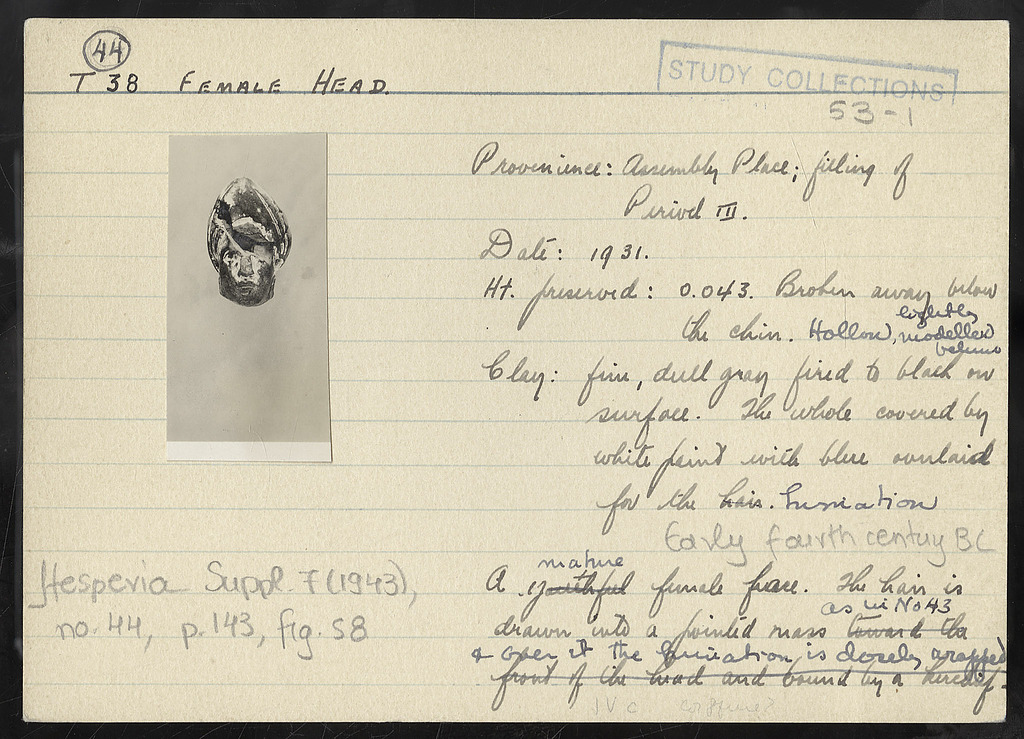 44
T 38 FEMALE HEAD.
STUDY COLLECTIONS
53-1
Provenience: Assembly Place; filling of
Period III.
Date: 1931.
Ht. preserved: 0.043. Broken away below
the chin. Hollow, lightly modelled behind
Clay: fine, dull gray fired to black on
surface. The whole covered by
white paint with blue overlaid
for the hair.
Early fourth century BC
mature
A youthful female face. The hair is
as in No 43
drawn into a pointed mass toward the
& over it the is closely wrapped
front of the head and bound by a kerchief.
IV c
Hesperia Suppl. 7 (1943),
no. 44, p. 143, fig. 58